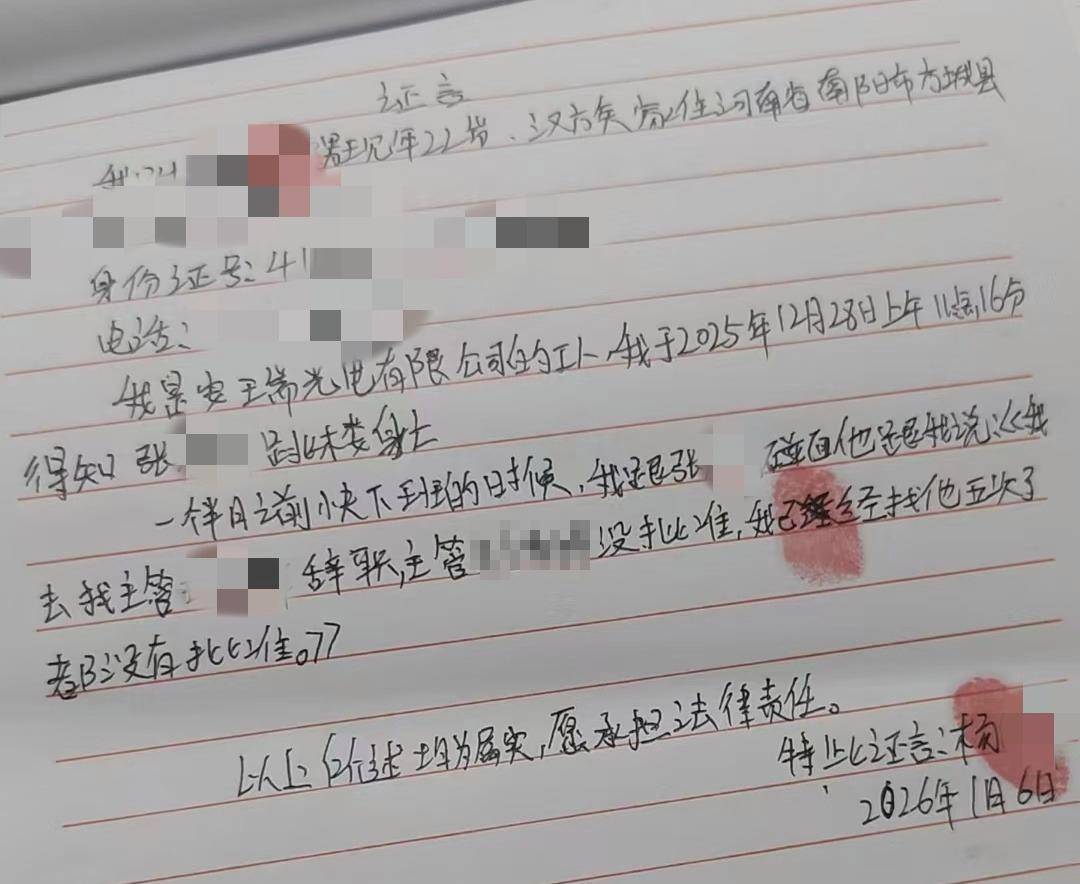 证言
我叫 男现年22岁、汉族家住河南省南阳市方城县
身份证号:41
电话:
我是安 瑞光电有限公司的工人,我于2025年12月28日上午11点16分
得知张 跳楼身亡
一个半月之前 下班的时候,我跟张 碰面他跟我说:《我
去找主管 辞职,主管 没批准,我已经找他五次了
都没有批准。》
以上 述均为属实,愿承担法律责任。
特此证言:杨
2026年1月6日